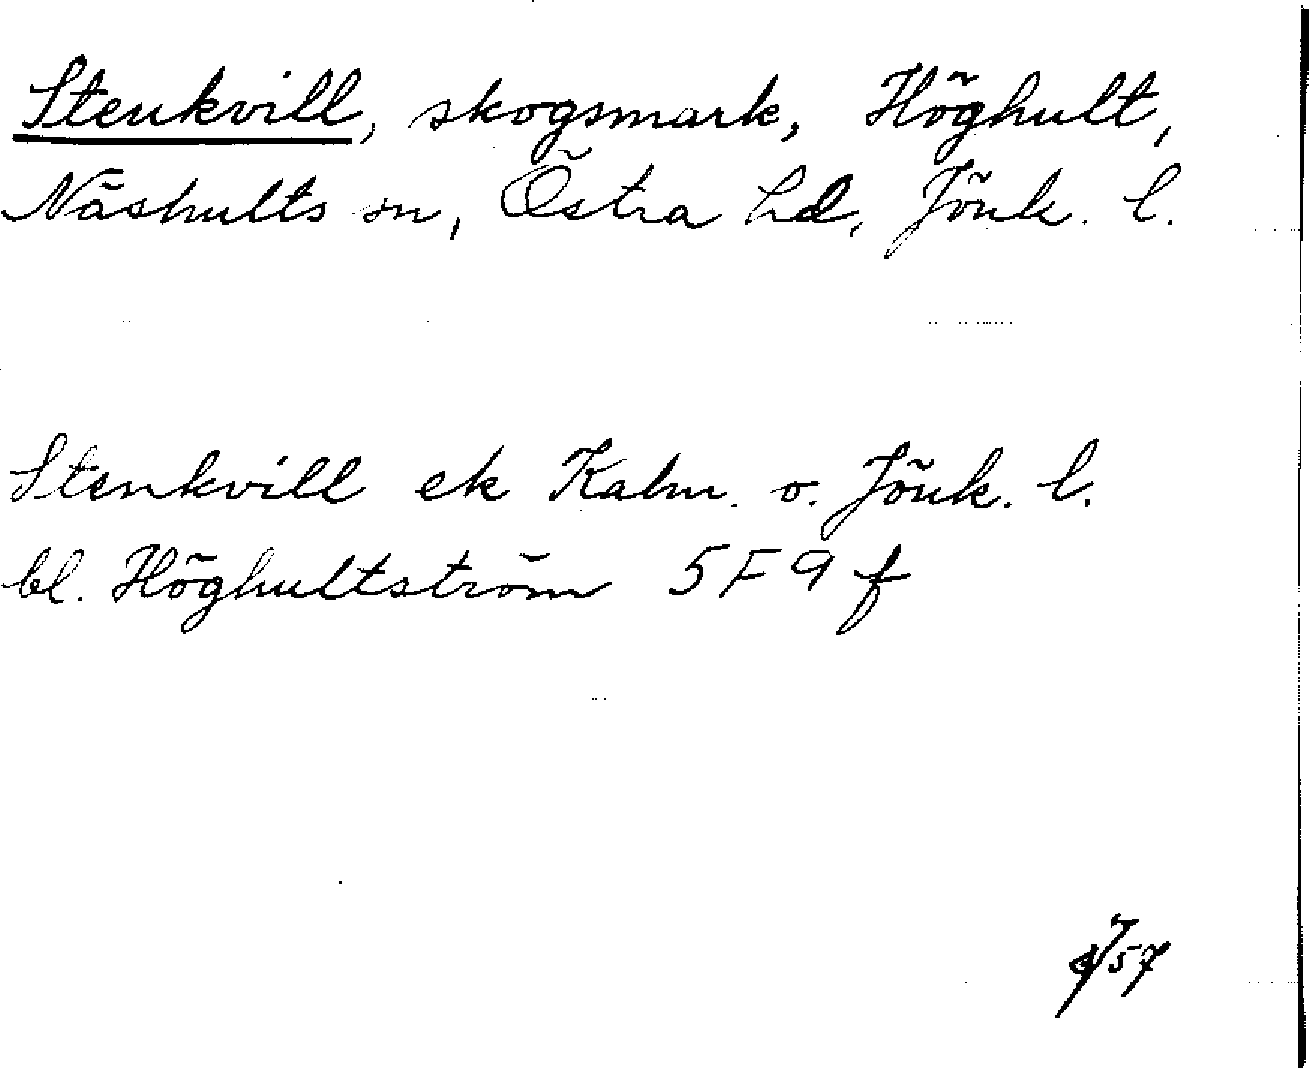 Stenkvill, skogsmark, Höghult,
Näshults sn, Östra hd, Jönk. l.
Stenkvill ek Kalm. o. Jönk. l.
bl. Höghultström 5F 9 f